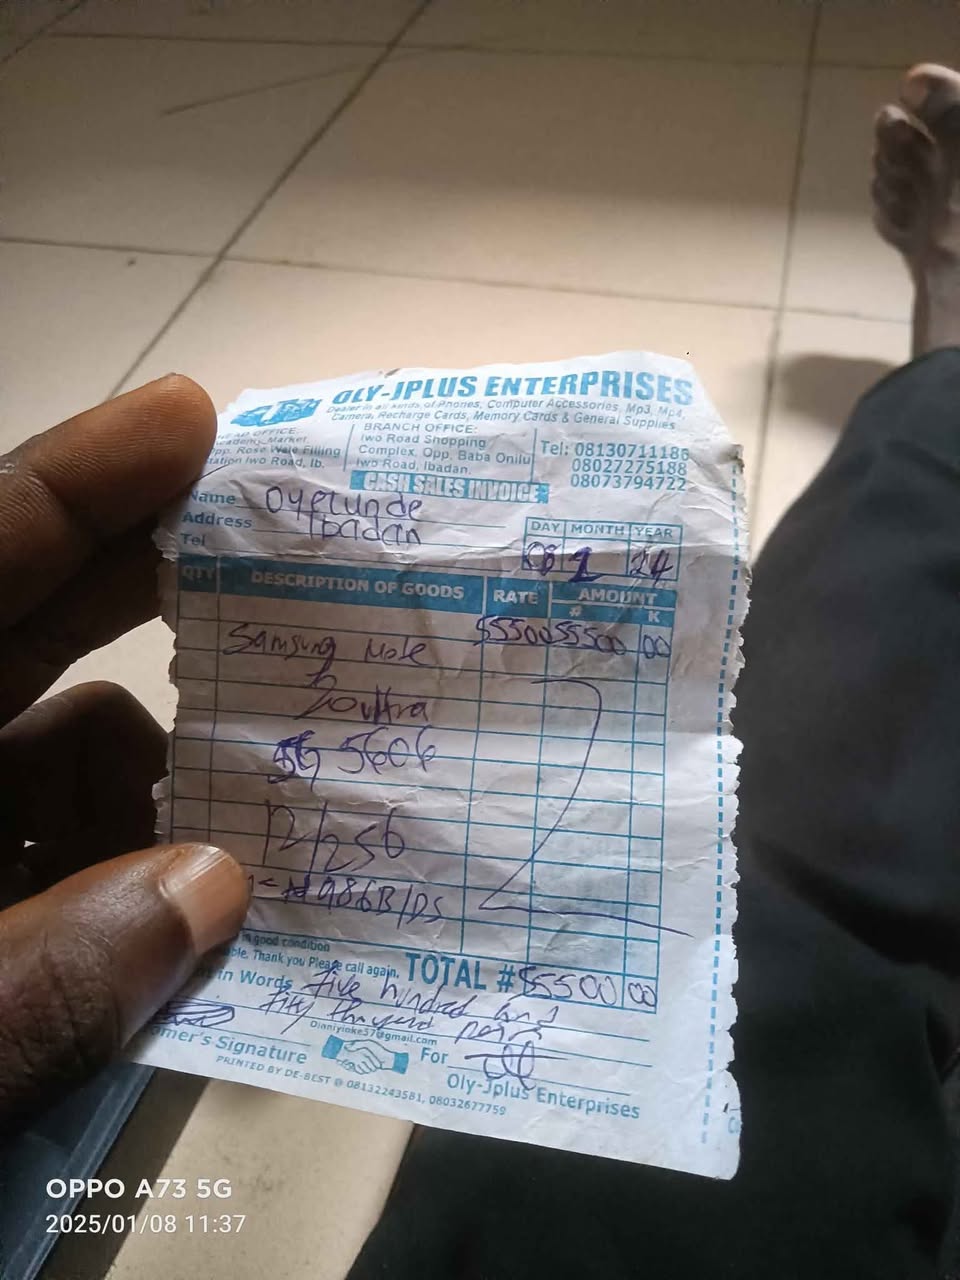 OLY-JPLUS ENTERPRISES
Dealer in all kinds of Phones, Computer Accessories, Mp3, Mp4,
Camera, Recharge Cards, Memory Cards & General Supplies
HEAD OFFICE:
Academy Market
Opp. Rose Wale Filling
Station Iwo Road, Ib.
BRANCH OFFICE:
Iwo Road Shopping
Complex, Opp. Baba Onilu
Iwo Road, Ibadan.
Tel: 08130711186
08027275188
08073794722
CASH SALES INVOICE
Name Oyetunde
Address Ibadan
Tel
DAY MONTH YEAR
1 24
QTY DESCRIPTION OF GOODS RATE AMOUNT
# K
Samsung Note 55500 55500 00
20 ultra
5G 5606
12/256
986B/DS
in good condition
Thank you Please call again.
TOTAL # 55500 00
in Words five hundred and
fifty thousand
Oinniyioke57@gmail.com
omer's Signature For
Oly-Jplus Enterprises
PRINTED BY DE-BEST @ 08132243581, 08032677759
OPPO A73 5G
2025/01/08 11:37